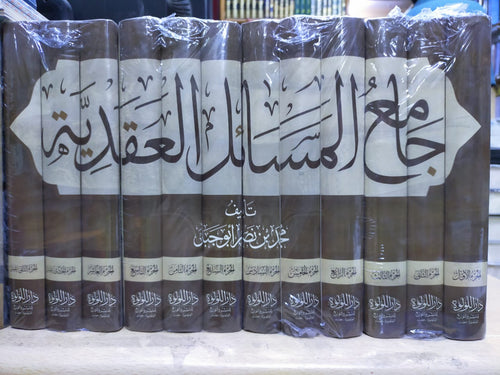 جَامِعُ المَسَائِلِ العَقَدِيَّةِ
تأليف
محمد بن نصر أبو جبل
الجزء الأول
الجزء الثاني
الجزء الثالث
الجزء الرابع
الجزء الخامس
الجزء السادس
الجزء السابع
الجزء الثامن
الجزء التاسع
الجزء العاشر
الجزء الحادي عشر
الجزء الثاني عشر
دار اللؤلؤة
دار اللؤلؤة
دار اللؤلؤة
دار اللؤلؤة
دار اللؤلؤة
دار اللؤلؤة
دار اللؤلؤة
دار اللؤلؤة
دار اللؤلؤة
دار اللؤلؤة
دار اللؤلؤة
دار اللؤلؤة